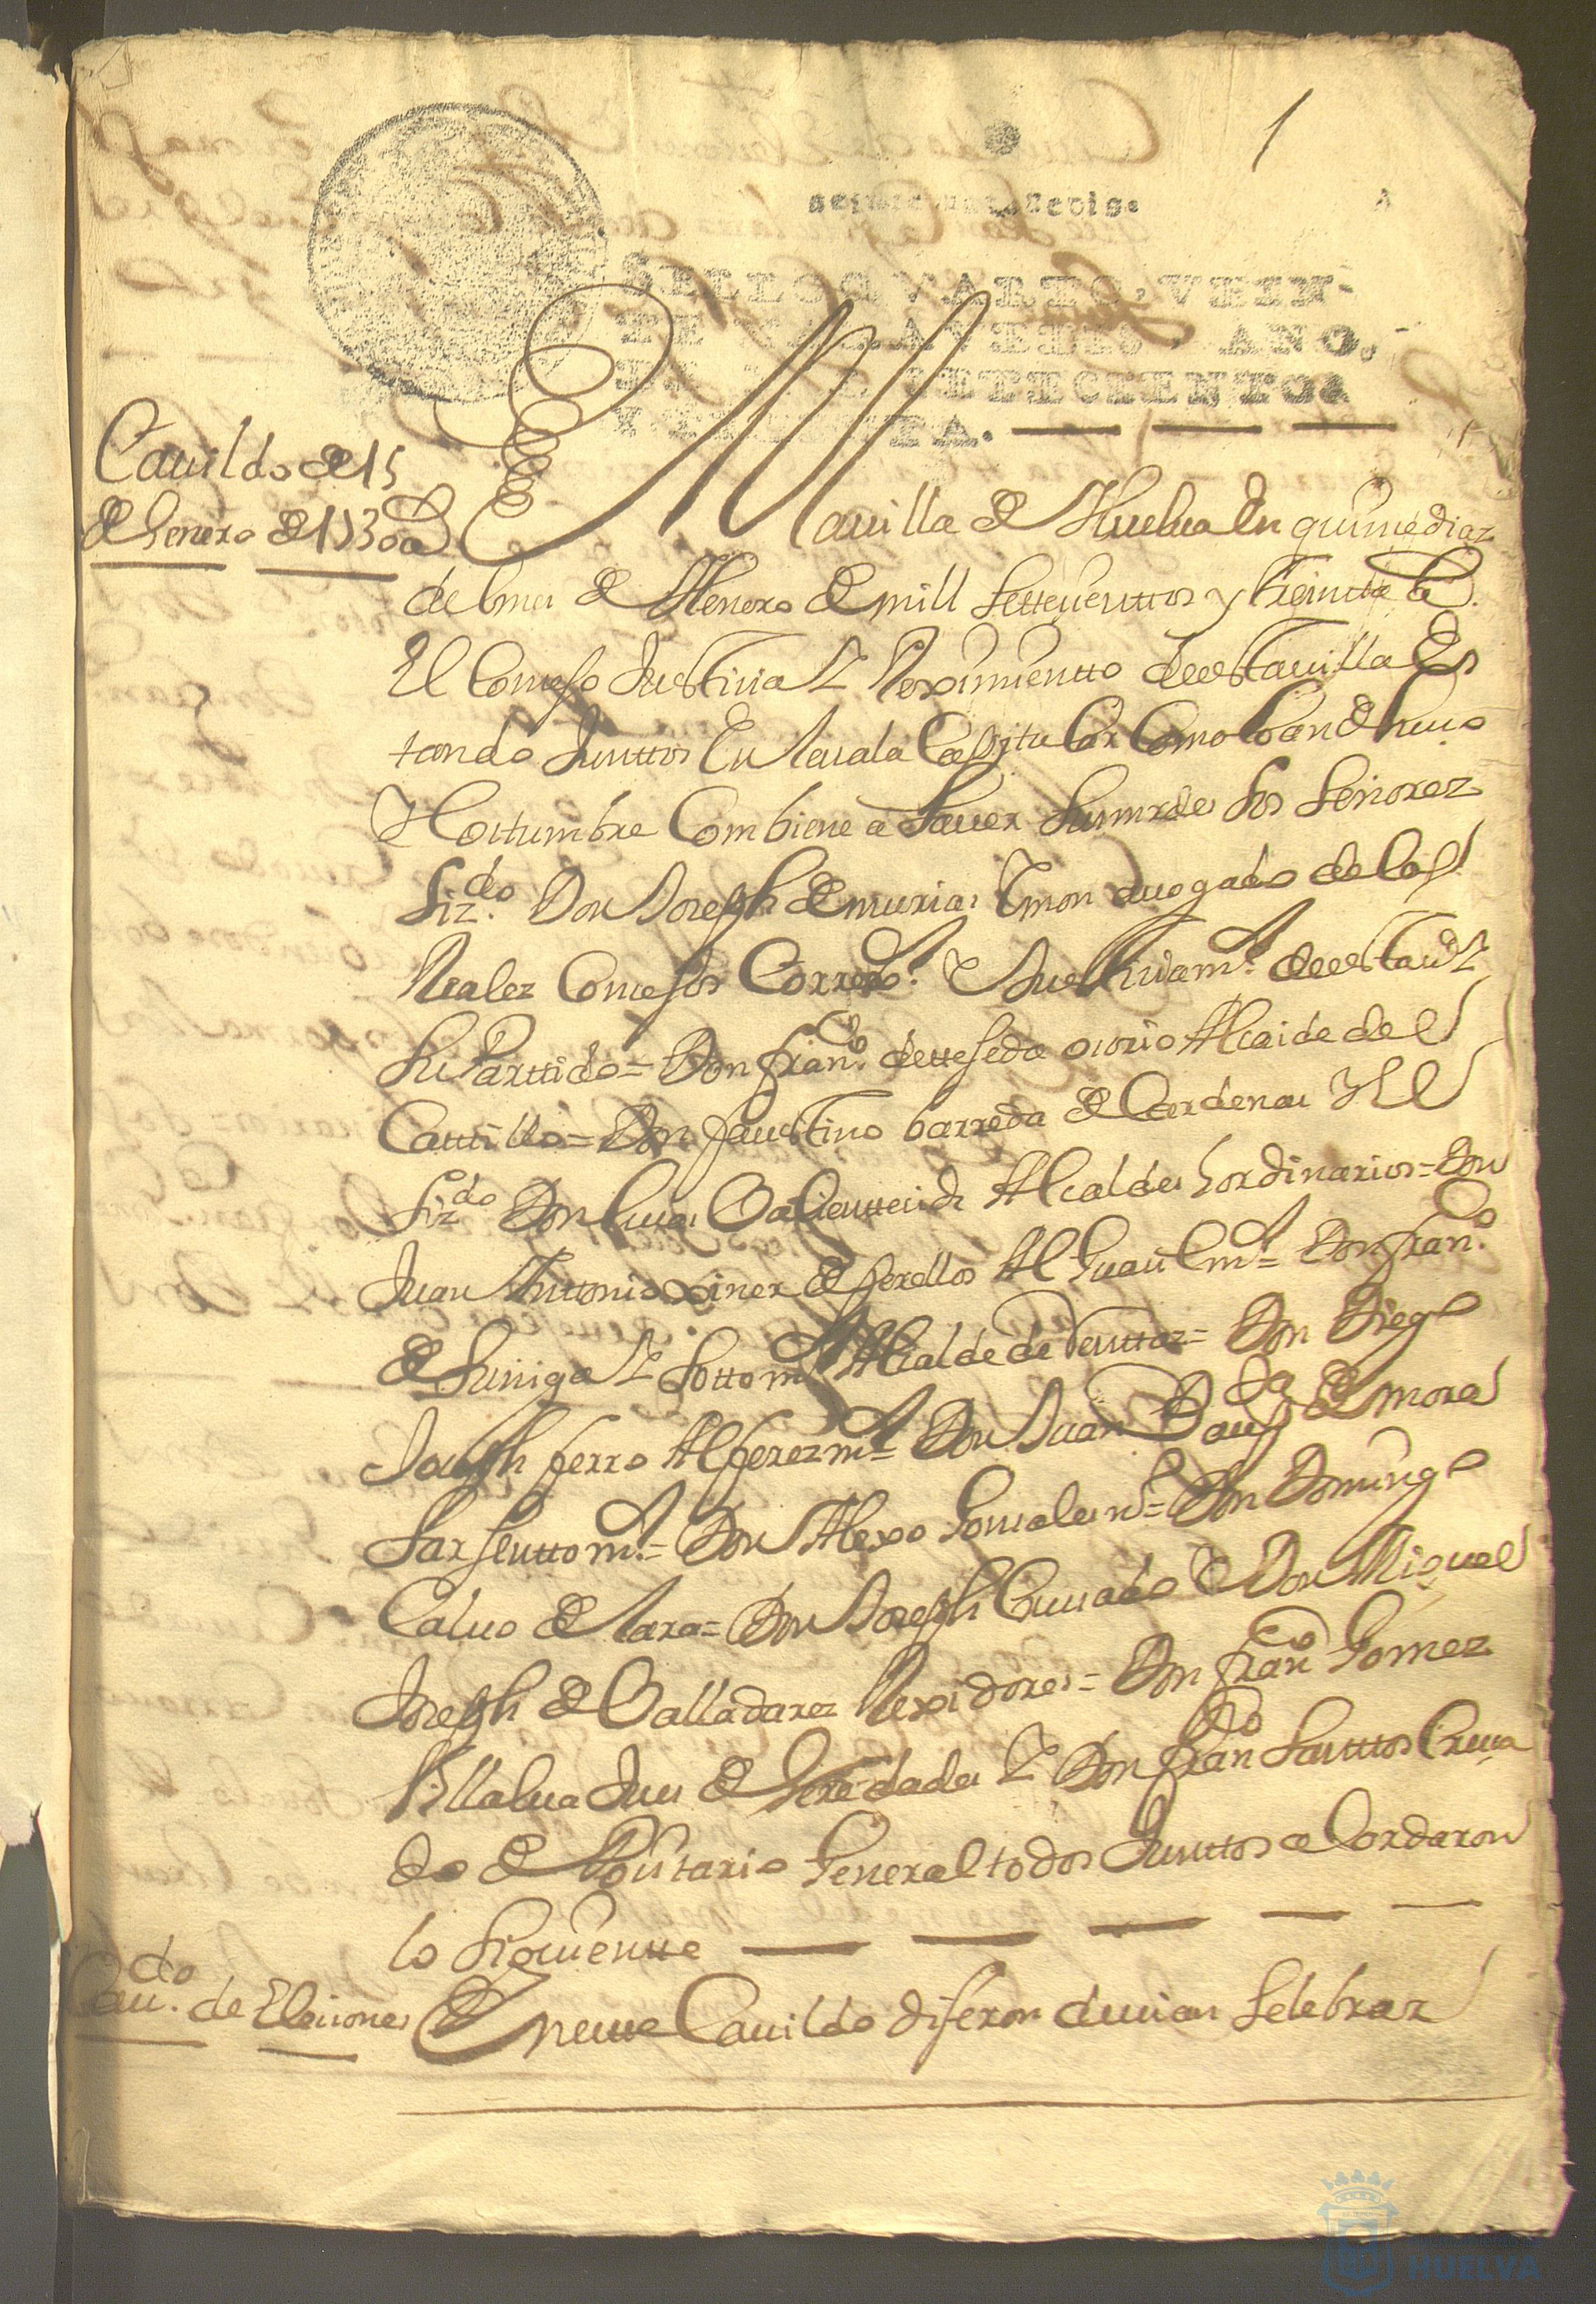 1
SELLO QVARTO, VEIN-
TE MARAVEDIS, AÑO,
DE MIL SETECIENTOS
Y TREINTA.
Cauildo de 15
de henero de 1730 as
En la uilla de Huelua en quinze dias
del mes de Henero de mill settezienttos y treintta as.
El Conzejo Justizia y Reximientto de esta uilla Es
tando Junttos En la sala Capitular Como lo an de huso
Y Costumbre Combiene a Sauer sus mrdes los señorez
Lizdo. Don Joseph de murias auogado de los
Realez Consejos Corredor. e Justizia mr. de esta va y
su Parttido = Don Frano. de ttejeda osorio Alcaide del
Casttillo = Don Faustino barreda de Cardenas Y el
Lizdo Don Lucas Alcaldes hordinarios = Don
Juan Anttonio xiner de perellos Al Guazil mr = Don Frano.
de Suniga y Sottomr Alcalde de = Don Diego
Joseph ferro Alferez mr = Don Juan Bauptta de mora
Sarjentto mr. = Don Alexo Gonzales = Don Domingo
Caluo de lara = Don Joseph Cruzado e Don Miguel
Joseph de Valladarez Rexidores = Don Frano Gomez
Villalua Jues de heredades y Don Frano Santtos Cruza
do de General todos Junttos a Cordaron
lo siguientte
Caudo. de Eleziones
En este Cauildo dijeron deuian selebrar
HUELVA